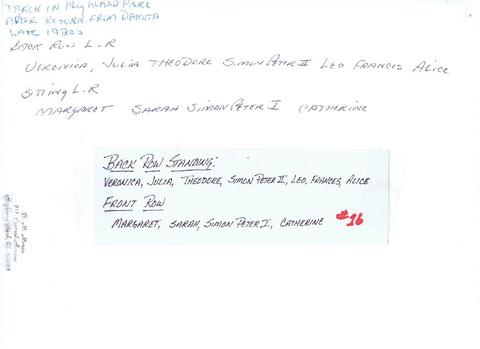 TAKEN IN HIGHLAND PARK
AFTER RETURN FROM DAKOTA
LATE 1920'S
BACK ROW L-R
VERONICA, JULIA THEODORE SIMON PETER II LEO FRANCES ALICE
SITTING L-R
MARGARET SARAH SIMON PETER I CATHERINE
BACK ROW STANDING:
VERONICA, JULIA, THEODORE, SIMON PETER II, LEO, FRANCES, ALICE
FRONT ROW
MARGARET, SARAH, SIMON PETER I, CATHERINE #16